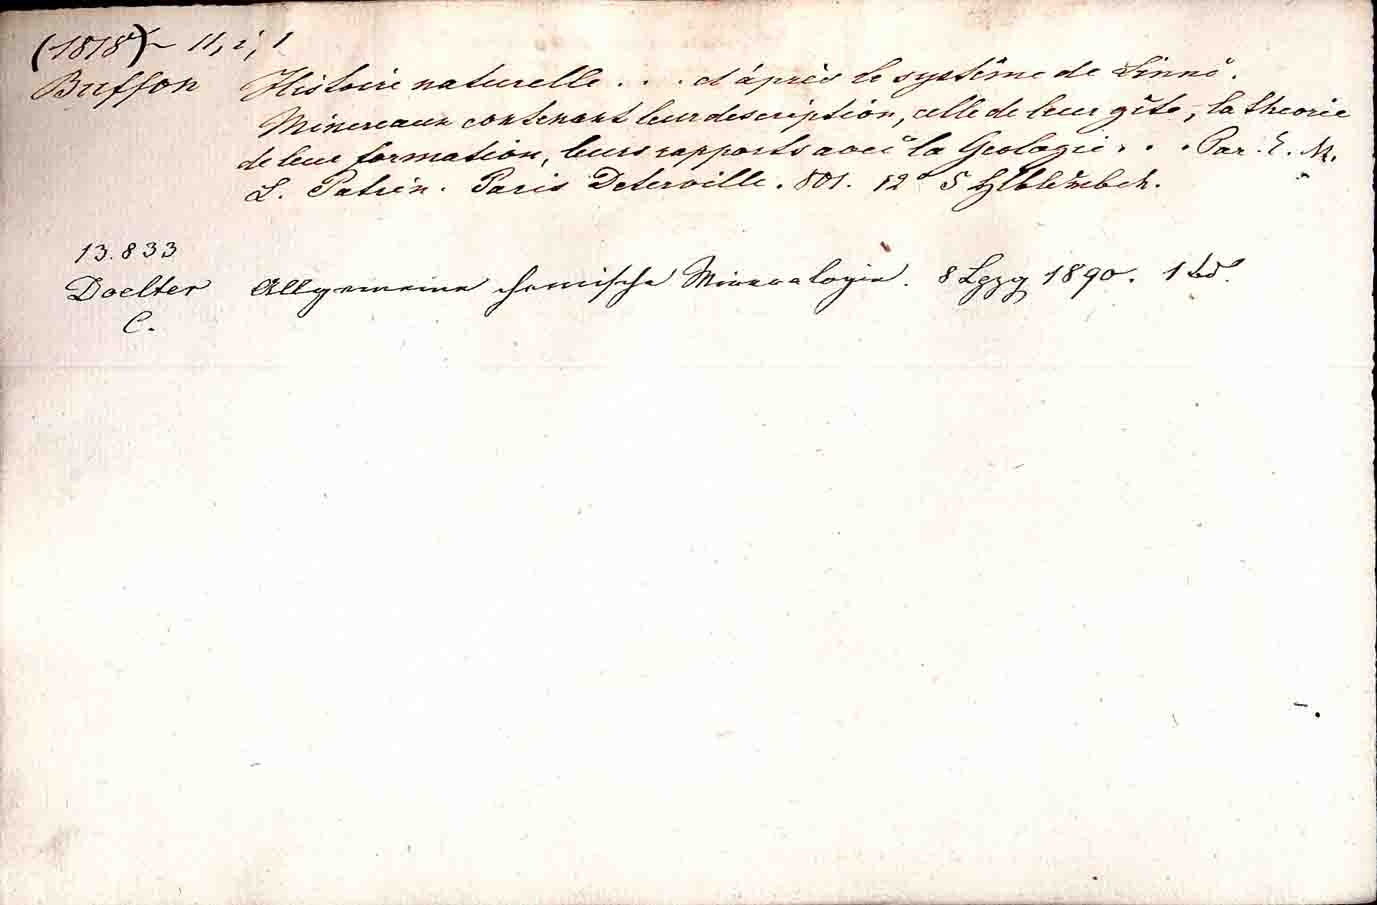 (1818) - 11, i, 1
Buffon Histoire naturelle . . . d'áprès le système de Linné.
Minereaux contenant leur description, celle de leur gîte, la theorie
de leur formation, leurs rapports avec la Geologie . . . Par. E. M.
L. Patrin. Paris Deterville. 801. 12° 5 Hlbldrbch.
13.833
Doelter Allgemeine chemische Mineralogie. 8 Lpzg 1890. 1 Bd.
C.